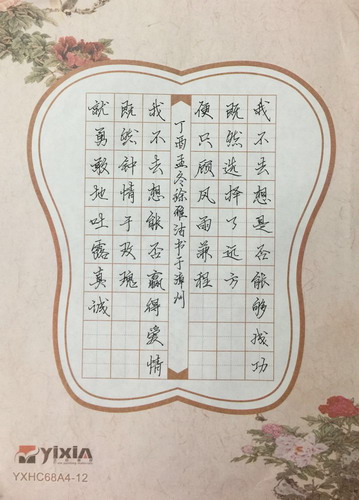 我不去想是否能够成功
既然选择了远方
便只顾风雨兼程
丁酉孟冬徐雅洁书于漳州
我不去想能否赢得爱情
既然钟情于玫瑰
就勇敢地吐露真诚
yixin
YXHC68A4-12